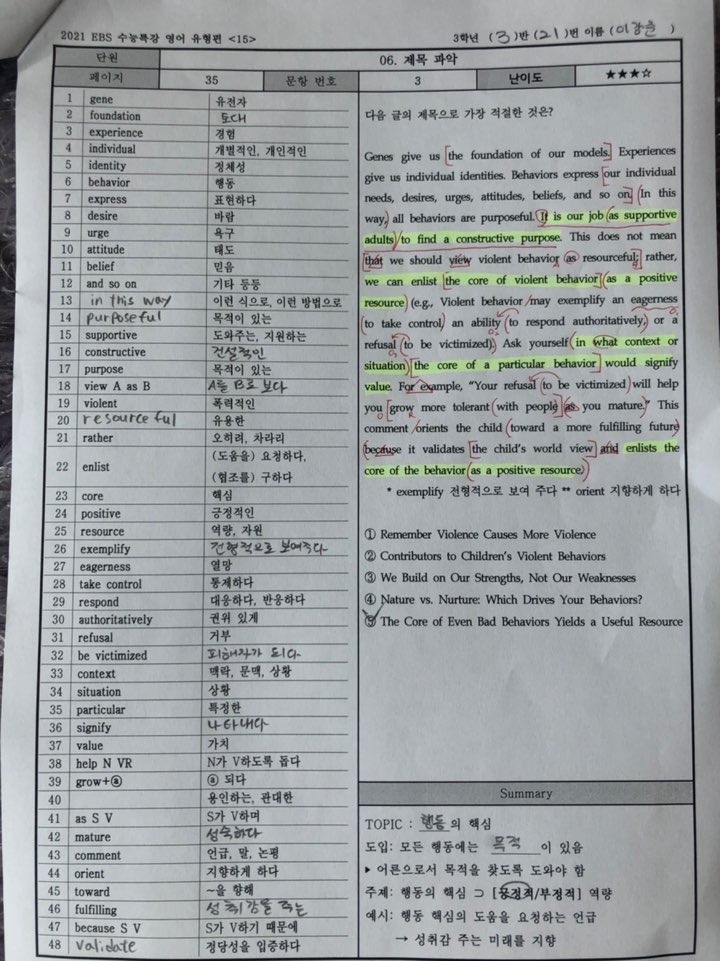 2021 EBS 수능특강 영어 유형편 <15>
3학년 (3)반 (21)번 이름 (이강준)
단원 06. 제목 파악
페이지 35 문항 번호 3 난이도 ★★★☆
1 gene 유전자
2 foundation 토대
3 experience 경험
4 individual 개별적인, 개인적인
5 identity 정체성
6 behavior 행동
7 express 표현하다
8 desire 바람
9 urge 욕구
10 attitude 태도
11 belief 믿음
12 and so on 기타 등등
13 in this way 이런 식으로, 이런 방법으로
14 purposeful 목적이 있는
15 supportive 도와주는, 지원하는
16 constructive 건설적인
17 purpose 목적이 있는
18 view A as B A를 B로 보다
19 violent 폭력적인
20 resourceful 유용한
21 rather 오히려, 차라리
22 enlist (도움을) 요청하다,
(협조를) 구하다
23 core 핵심
24 positive 긍정적인
25 resource 역량, 자원
26 exemplify 전형적으로 보여주다
27 eagerness 열망
28 take control 통제하다
29 respond 대응하다, 반응하다
30 authoritatively 권위 있게
31 refusal 거부
32 be victimized 피해자가 되다
33 context 맥락, 문맥, 상황
34 situation 상황
35 particular 특정한
36 signify 나타내다
37 value 가치
38 help N VR N가 V하도록 돕다
39 grow+ⓐ ⓐ 되다
40 용인하는, 관대한
41 as S V S가 V하며
42 mature 성숙하다
43 comment 언급, 말, 논평
44 orient 지향하게 하다
45 toward ~을 향해
46 fulfilling 성취감을 주는
47 because S V S가 V하기 때문에
48 validate 정당성을 입증하다
다음 글의 제목으로 가장 적절한 것은?
Genes give us the foundation of our models. Experiences
give us individual identities. Behaviors express our individual
needs, desires, urges, attitudes, beliefs, and so on. In this
way, all behaviors are purposeful. It is our job as supportive
adults to find a constructive purpose. This does not mean
that we should view violent behavior as resourceful; rather,
we can enlist the core of violent behavior as a positive
resource (e.g., Violent behavior may exemplify an eagerness
to take control, an ability to respond authoritatively, or a
refusal to be victimized). Ask yourself in what context or
situation the core of a particular behavior would signify
value. For example, "Your refusal to be victimized will help
you grow more tolerant with people as you mature." This
comment orients the child toward a more fulfilling future
because it validates the child's world view and enlists the
core of the behavior as a positive resource.
* exemplify 전형적으로 보여 주다 ** orient 지향하게 하다
① Remember Violence Causes More Violence
② Contributors to Children's Violent Behaviors
③ We Build on Our Strengths, Not Our Weaknesses
④ Nature vs. Nurture: Which Drives Your Behaviors?
⑤ The Core of Even Bad Behaviors Yields a Useful Resource
Summary
TOPIC : 행동의 핵심
도입: 모든 행동에는 목적이 있음
▸ 어른으로서 목적을 찾도록 도와야 함
주제: 행동의 핵심 ⊃ [긍정적/부정적] 역량
예시: 행동 핵심의 도움을 요청하는 언급
→ 성취감 주는 미래를 지향